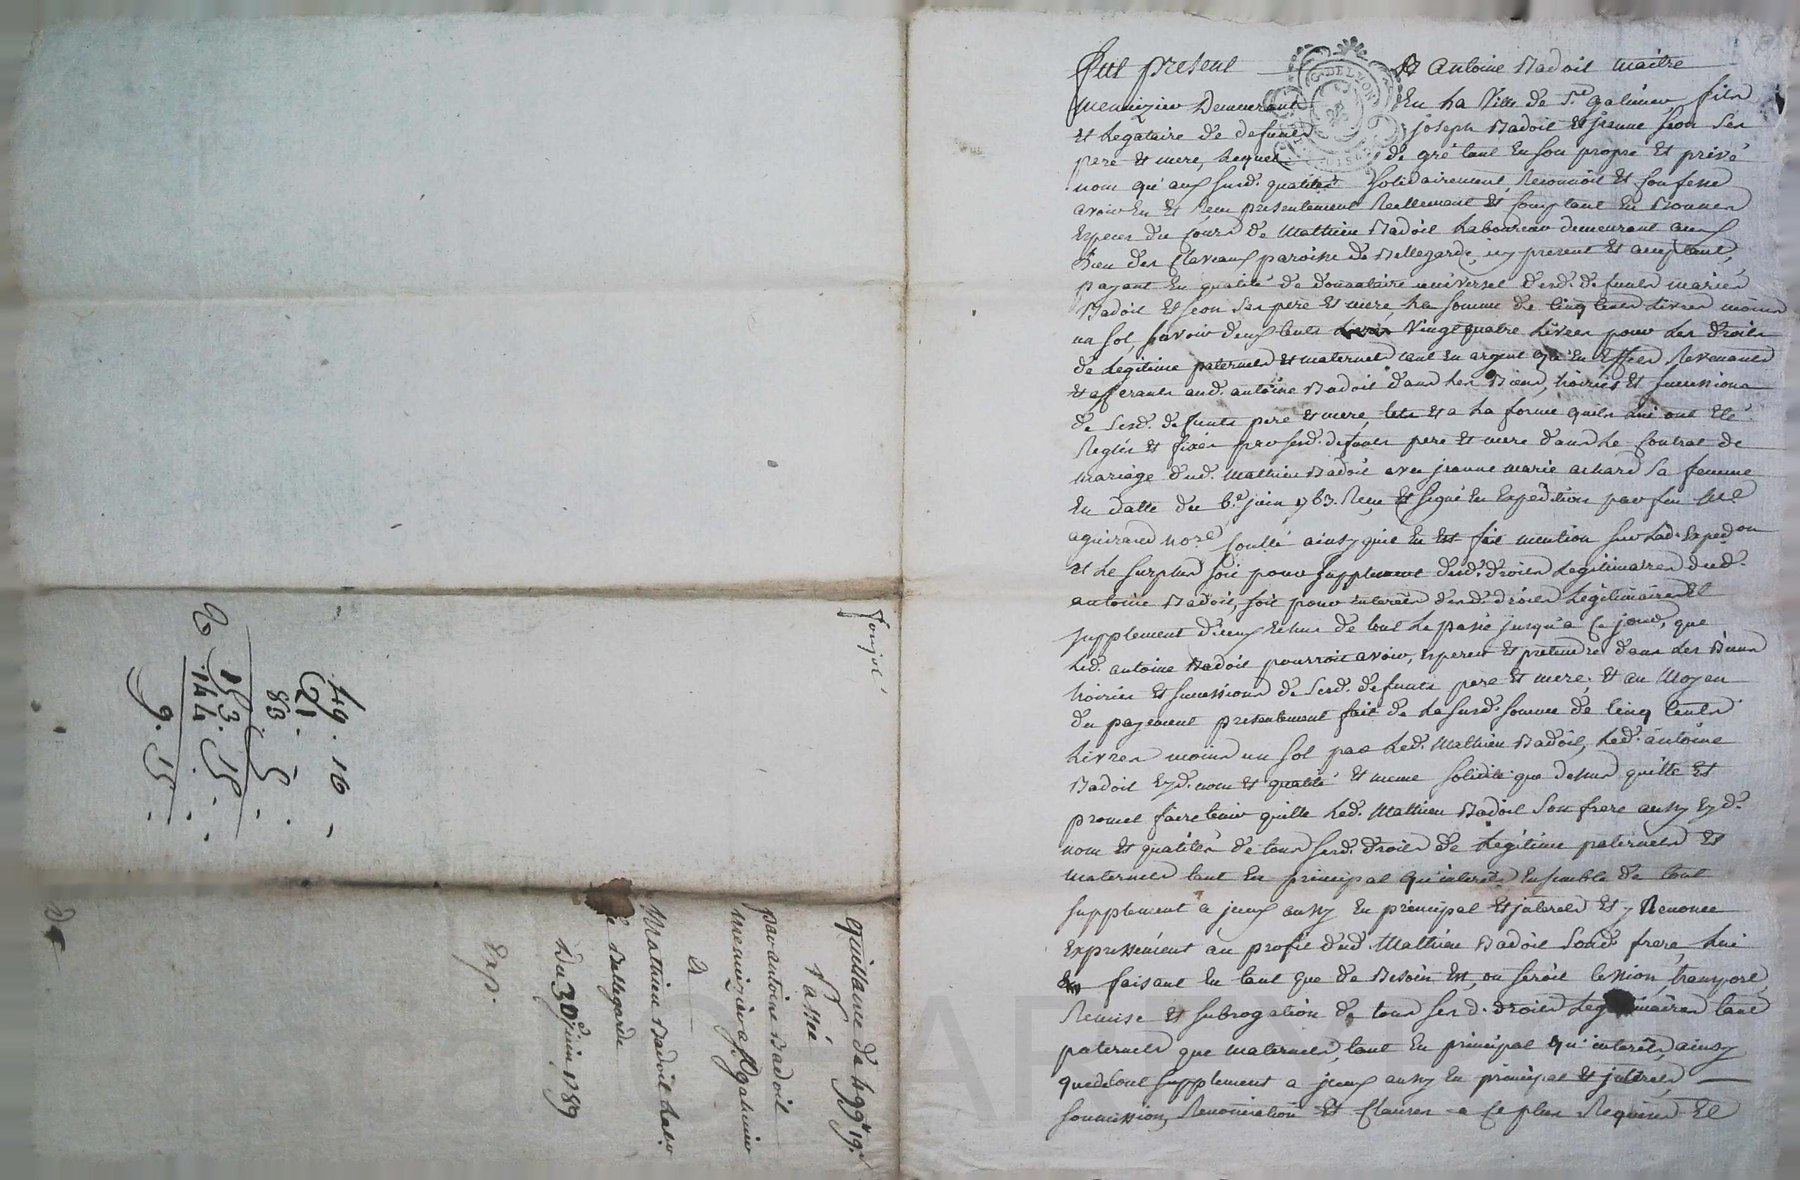 fut present Sr Antoine Badoil maître
menuizier demeurant En la Ville de St galmier, fils
et Legataire de defunts joseph Badoil Et jeanne jeon Ses
pere et mere, Lequel de gré tant En son propre Et privé
nom qu'aux susd. qualités Solidairement, Reconnoit Et Confesse
avoir Eu Et Reçu presentement Reellement Et Comptant En Bonnes
Especes du Cours de Mathieu Badoil Laboureur demeurant au
Lieu des Claveaux paroisse de Bellegarde, icy present Et acceptant,
payant En qualité de donnataire universel desd. defunts mariés
Badoil Et jeon Ses pere Et mere, La somme de Cinq Cents Livres moins
un sol, savoir deux Cents Vingt quatre Livres pour Les droits
de Legitime paternels Et maternels tant En argent qu'en Effets Revenants
Et afferants aud. antoine Badoil dans Les Biens, hoiries Et successions
de Sesd. defunts pere Et mere, tels Et a La forme quils Lui ont Eté
Reglés Et fixés par Sesd. defunts pere Et mere dans Le Contrat de
mariage dud. Mathieu Badoil avec jeanne marie achard Sa femme
En datte du 6e juin 1763 Reçu Et signé En Expédition par feu Me
aguiraud nore Conllé ainsy quil En Est fait mention sur Lad. Expedon
et Le surplus soit pour supplement desd. droits Legitimaires dud.
antoine Badoil, soit pour interêts desd. droits Legitimaires Et
supplement d'iceux Echus de tout Le passé jusqu'a Ce jour, que
Led. antoine Badoil pourroit avoir, Esperer Et pretendre dans Les Biens
hoiries Et successions de Sesd. defunts pere Et mere; Et au Moyen
du payement presentement fait de La susd. somme de Cinq Cents
Livres moins un sol par Led. Mathieu Badoil, Led. antoine
Badoil Eyd. nom Et qualité Et meme solidité que dessus quitte Et
promet faire tenir quitte Led. Mathieu Badoil Son frere aussy Eyd.
nom Et qualités de tous sesd. droits de Légitime paternels Et
maternels tant En principal qu'interêts Ensemble de tout
supplement a iceux aussy En principal Et interets Et y Renonce
Expressement au profit dud. Mathieu Badoil Sond. frere, Lui
En faisant En tant que de Besoin Est, ou seroit Cession, transport,
Remise Et subrogation de tous ses d. droits Legitimaires tant
paternels que maternels, tant En principal qu'interêts, ainsy
que de tout supplement a iceux aussy En principal Et interets,
soumission, Renonciation Et Clauses a Ce plus Requises Et
quittance de 499 lt 19 s
Passée
par antoine Badoil
menuizier a St galmier
A
Mathieu Badoil Labr
de Bellegarde
Du 30e juin 1789
Exp.
49. 16
21.
83. 5
153. 15
144.
9. 15